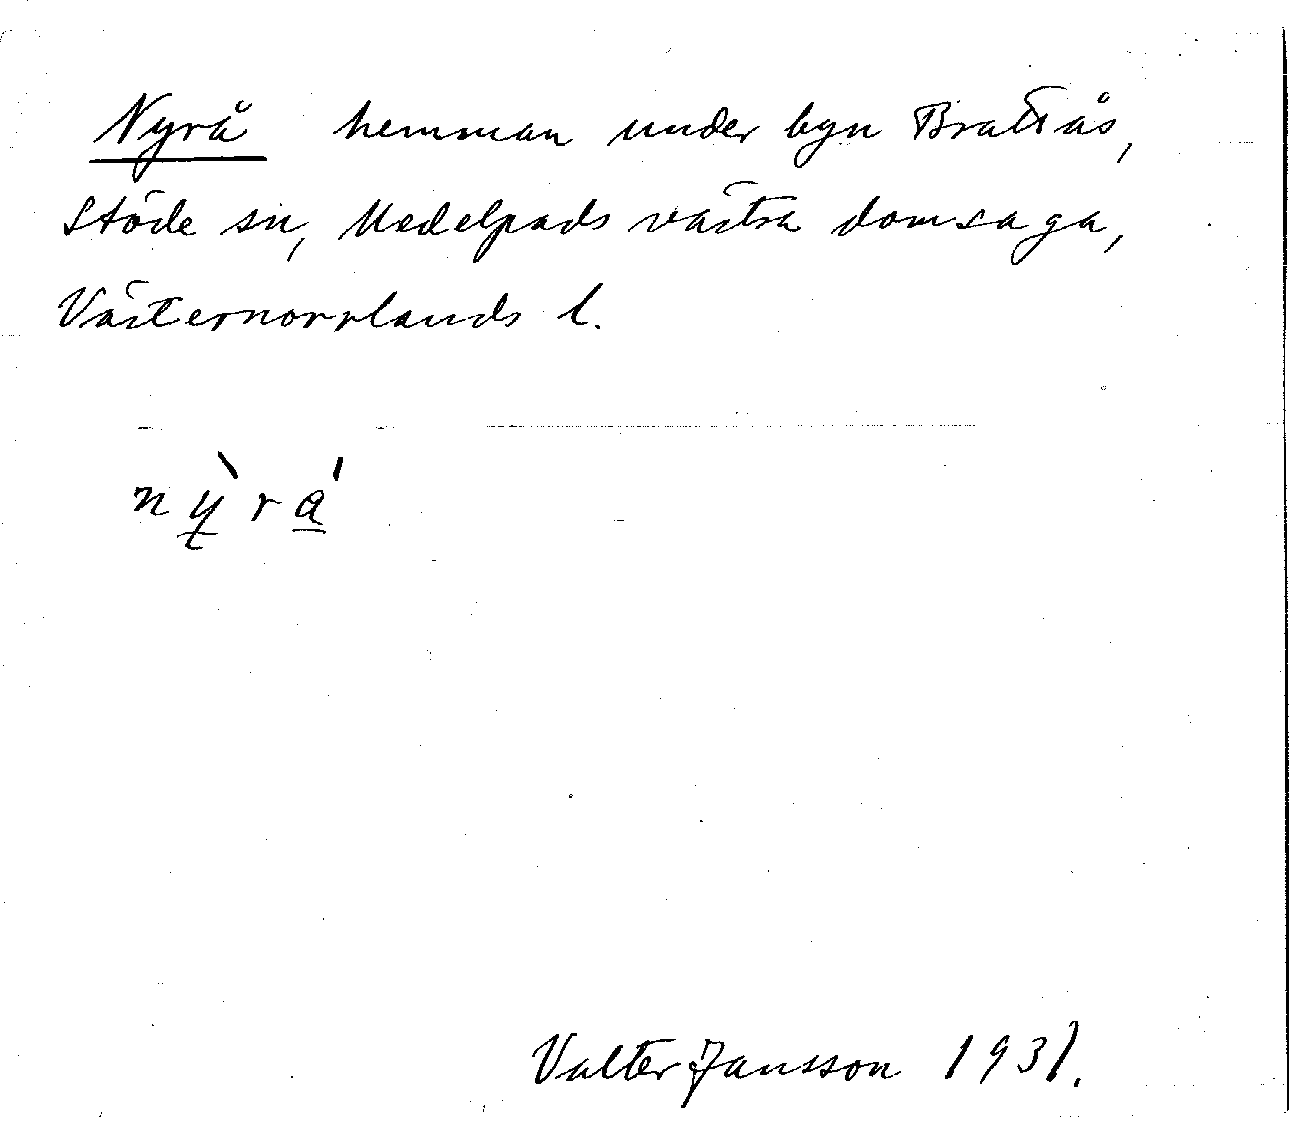 Nyrå hemman under byn Brattås,
Stöde sn, Medelpads västra domsaga,
Västernorrlands l.
nỳ̲rá̲
Valter Jansson 1931.